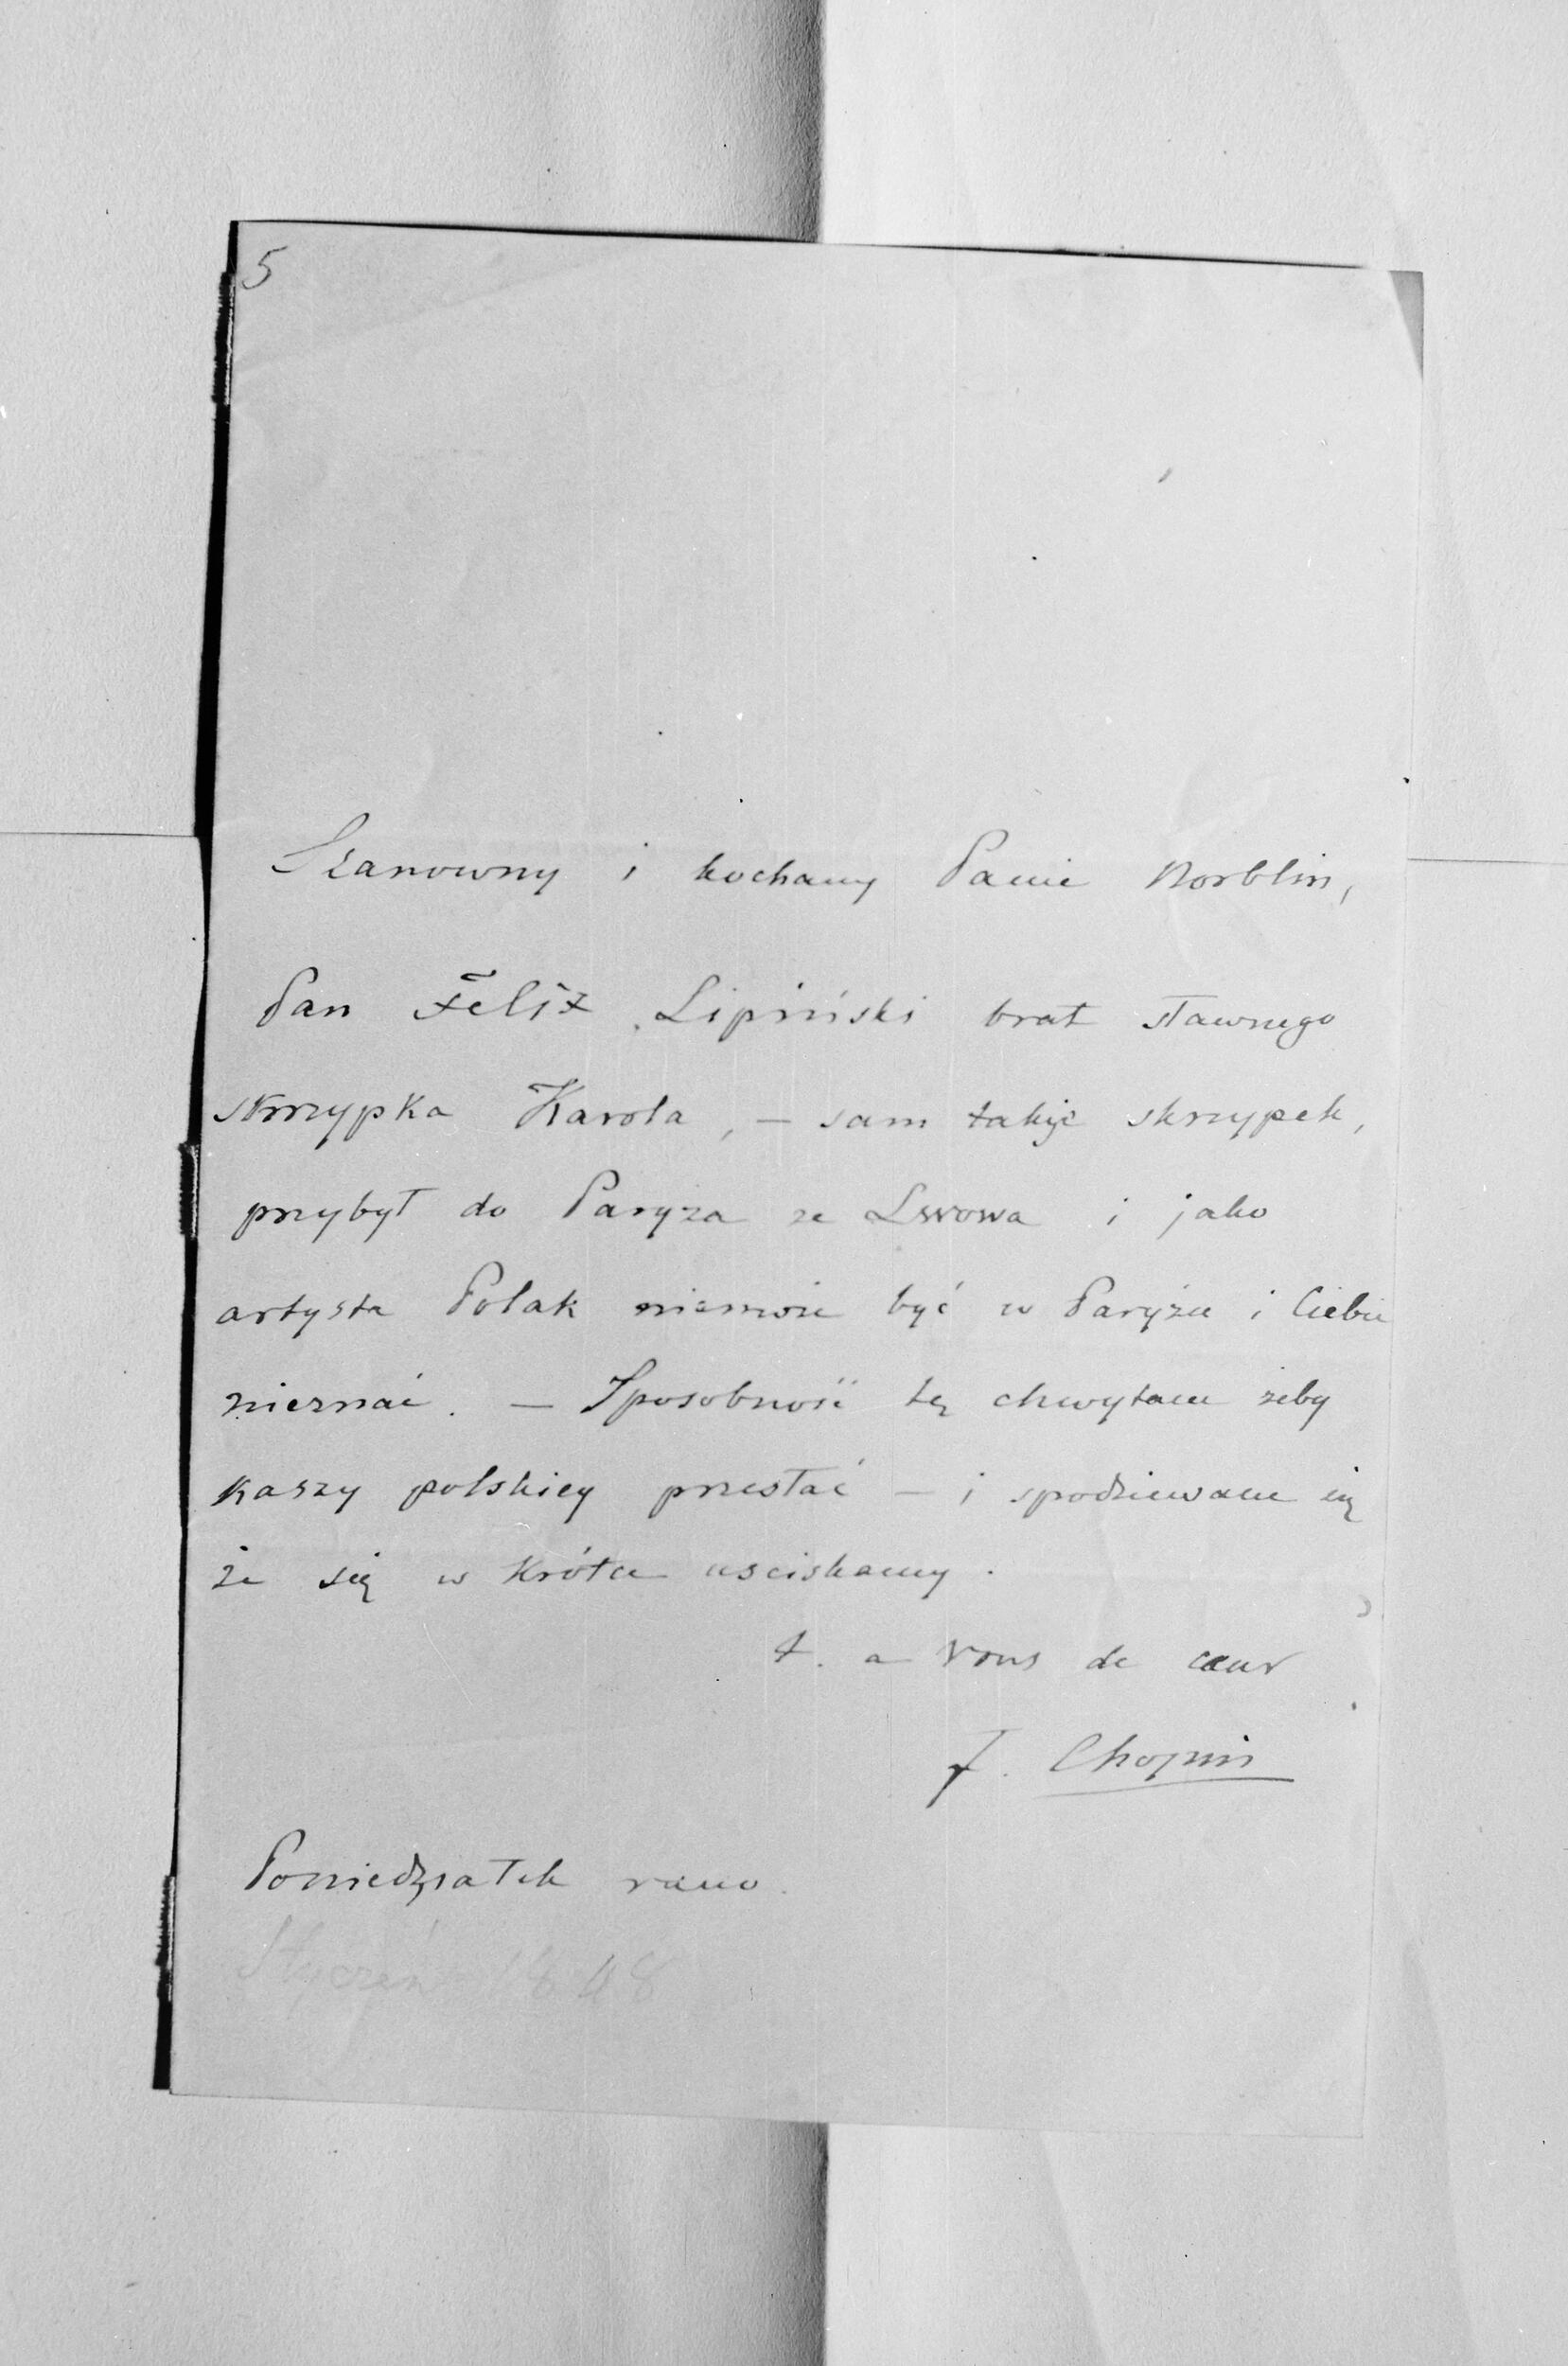 5
Szanowny i kochany Panie Norblin,
Pan Felix Lipiński brat sławnego
skrzypka Karola, – sam także skrzypek,
przybył do Paryza ze Lwowa i jako
artysta Polak niemoże być w Paryżu i Ciebie
nieznać. – Sposobność tę chwytam żeby
Kaszy polskiey przesłać – i spodziewam się
że się w Krótce usciskamy.
t. a vous de cœur
F. Chopin
Poniedziałek rano.
Styczeń 1848